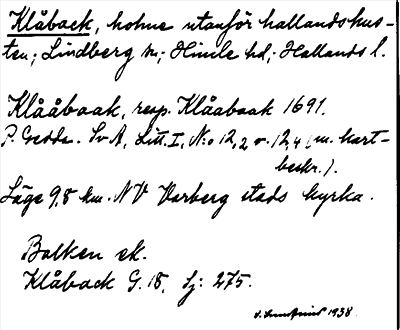 Klåback, holme utanför hallandskus-
ten; Lindberg sn; Himle hd; Hallands l.
Klååbaak, resp. Klåabaak 1691.
P. Gedda. SvA, Litt. I, N:o 12,2 o. 12,4 (m. kart-
beskr.).
Läge 9,8 km. NV Varberg stads kyrka.
Balken ek.
Klåback G. 18, Sj: 275.
1938